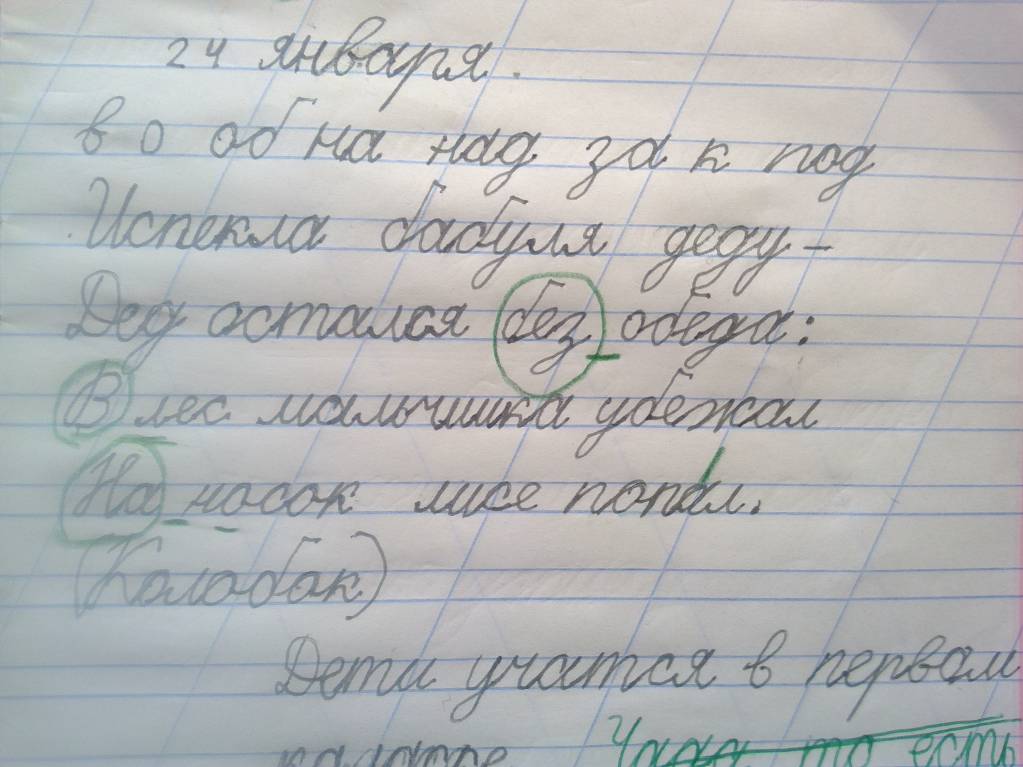 24 января.
в о об на над за к под
Испекла бабуля деду –
Дед остался без обеда:
В лес мальчишка убежал
На носок лисе попал.
(Колобок)
Дети учатся в первом
то есть